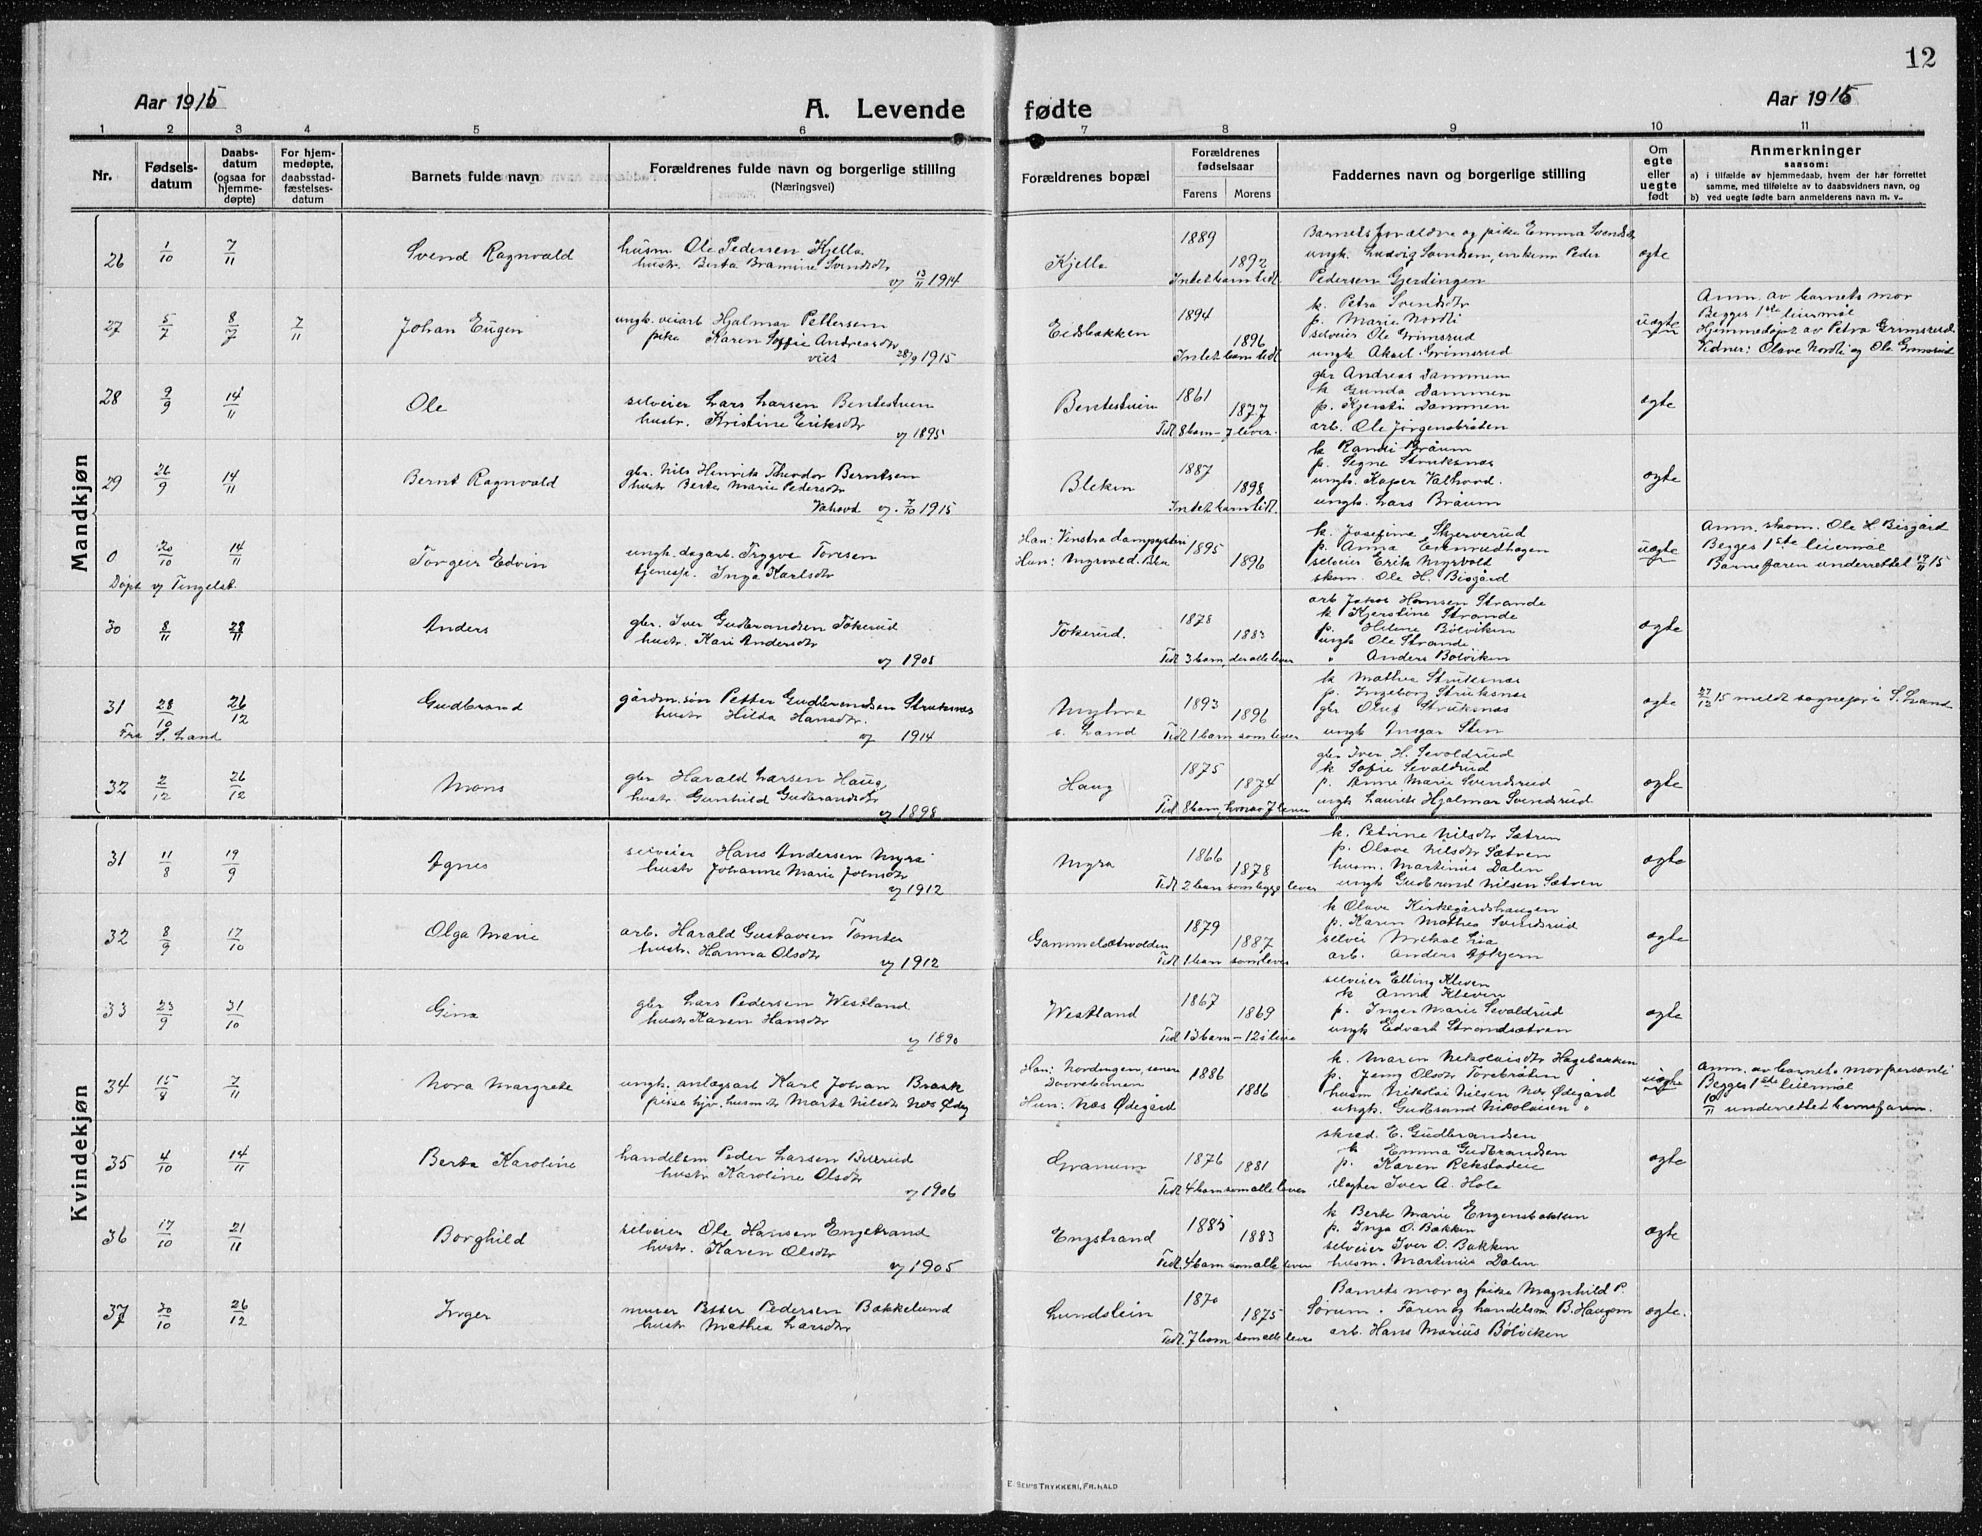 12
Aar 1915
A. Levende fødte
Aar 1915
1 2 3 4 5 6 7 8 9 10 11
Nr.
Fødsels-
datum
Daabs-
datum
(ogsaa for
hjemme-
døpte)
For hjem-
medøpte,
daabsstad-
fæstelses-
datum
Barnets fulde navn
Forældrenes fulde navn og borgerlige stilling
(Næringsvei)
Forældrenes bopæl
Forældrenes
fødselsaar
Farens Morens
Faddernes navn og borgerlige stilling
Om
egte
eller
uegte
født
Anmerkninger
saasom:
a) i tilfælde av hjemmedaab, hvem der har forrettet
samme, med tilføielse av to daabsvidners navn, og
b) ved uegte fødte barn anmelderens navn m. v..
Mandkjøn
26 1/10 7/11 Svend Ragnvald
husm Ole Pedersen Kjelle
hustr. Berta Bramine Svendsdtr
vj 13/11 1914
Kjelle 1889 1892
Intet barn tidl.
Barnets forældre og pike Emma Svendsdtr
ungk. Ludvig Svendsen, enkem Peder
Pedersen Gjerdingen
egte
27 5/7 8/7 7/11 Johan Eugen
ungk. veiarb Hjalmar Pettersen
pike Karen Sofie Andreasdtr
viet 28/9 1915
Eidsbakken 1894 1896
Intet barn tidl.
k. Petra Svendsdtr
p. Marie Nordli
selveier Ole Grimsrud
ungk Aksel Grimsrud
uegte
Anm. av barnets mor
Begges 1ste leiermål
Hjemmedøpt av Petra Grimsrud.
Vidner: Olave Nordli og Ole Grimsrud
28 9/9 14/11 Ole
selveier Lars Larsen Bentestuen
hustr. Kristine Eriksdtr
vj 1895
Bentestuen 1861 1877
Tidl 8 barn - 7 lever.
gbr Andreas Dammen
k Gunda Dammen
p. Kjersti Dammen
arb. Ole Jørgensbråten
egte
29 26/9 14/11 Bernt Ragnvald
gbr. Nils Henrik Theodor Berntsen
hustr Berte Marie Pedersdtr
Vahovd vj. 7/10 1915
Bleken 1887 1898
Intet barn tidl.
k Randi Bråum
p. Segne Struksnæs
ungk. Kasper Valhovd.
ungk. Lars Bråum
egte
0 20/10 14/11 Torgeir Edvin
Døpt vj Tingelst.
ungk. dagarb. Trygve Toresen
tjenesp. Inga Karlsdtr
Han: Vinstra dampysteri
Hun: Myrvold.
1895 1896
k. Josefine Skjerverud
p. Anna Evenrudhagen
selveier Erik Myrvold
skom. Ole H. Bisgård
uegte
Anm. skom. Ole H. Bisgård
Begges 1ste leiermål
Barnefaren underrettet 15
30 8/11 28/11 Anders
gbr. Iver Gudbrandsen Tokerud
hustr. Kari Andersdtr
vj 1905
Tokerud. 1878 1883
Tidl 3 barn der alle lever
arb Jakob Hansen Strande
k Kjerstine Strande
p. Helene Bølviken
ungk Ole Strande
" Anders Bølviken
egte
31 28/10 26/12 Gudbrand
Fra S. Land
gårdm. søn Petter Gudbrandsen Struksnæs
hustr Hilda Hansdtr
vj 1914
Myhre
s. Land
1893 1896
Tidl 1 barn som lever
k. Mathea Struksnæs
p. Ingeborg Struksnæs
gbr Oluf Struksnæs
ungk Ansgar Sten
egte
27/12 15 meldt sognepr i S. Land
32 2/12 26/12 Mons
gbr Harald Larsen Haug
hustr. Gunhild Gudbrandsdtr
vj 1898
Haug 1875 1874
Tidl 8 barn, hvorav 7 lever
gbr Iver H. Sevaldrud
k Sofie Sevaldrud
p. Anne Marie Svendsrud
ungk Laurits Hjalmar Svendsrud
egte
Kvindekjøn
31 11/8 19/9 Agnes
selveier Hans Andersen Myra
hustr Johanne Marie Johnsdtr
vj 1912
Myra 1866 1878
Tidl 2 barn som begge lever
k. Petrine Nilsdtr Sætren
p. Olave Nilsdtr Sætren
husm. Martinius Dalen
ungk Gudbrand Nilsen Sætren
egte
32 8/9 17/10 Olga Marie
arb. Harald Gustavsen Tomter
hustr. Hanna Olsdtr
vj 1912
Gammelsætvolden 1879 1887
Tidl 1 barn som lever
k Olave Kirkegårdshaugen
p. Karen Mathea Svendsrud
selvei Mikal Lia
arb. Anders Asbjern
egte
33 23/9 31/10 Gina
gbr Lars Pedersen Westland
hustr Karen Hansdtr
vj 1890
Westland 1867 1869
Tidl 13 barn - 12 i live
selveier Elling Kleven
k Anna Kleven
p. Inger Marie Sevaldrud
ungk Edvart Strandsætren
egte
34 15/8 7/11 Nora Margrete
ungk. anlægsarb Karl Johan Brask
pike hjv. husmdtr Marte Nilsdtr Næs Ødeg
Han: Nordingen, senere
Dovrebanen
Hun: Næs Ødegård
1886 1886
k. Maren Nikolaisdtr Hagebakken
p. Jenny Olsdtr Torebråten
husm Nikolai Nilsen Næs Ødegård
ungk. Gudbrand Nikolaisen "
uegte
Anm. av barnets mor personlig
Begges 1ste leiermål
10/11 underrettet barnefaren.
35 4/10 14/11 Berta Karoline
handelsm Peder Larsen Billerud
hustr Karoline Olsdtr
vj 1906
Granum 1876 1881
Tidl 4 barn som alle lever
skræd. E. Gudbrandsen
k Emma Gudbrandsen
p. Karen Rekstadeie
slagter Iver A. Hole
egte
36 17/10 21/11 Borghild
selveier Ole Hansen Engestrand
hustr. Karen Olsdtr
vj 1905
Engstrand 1885 1883
Tidl. 4 barn som alle lever
k Berte Marie Engensbakken
p. Inga O. Bakken
selveier Iver O. Bakken
husm. Martinius Dalen
egte
37 30/10 26/12 Inger
murer Petter Pedersen Bakkelund
hustr Mathea Larsdtr
Lundstein 1870 1875
Tidl. 7 barn som alle lever
Barnets mor og pike Magnhild P.
Sørum. Faren og handelsm B. Haugom
arb. Hans Marius Bølviken
egte.
E. SEM'S TRYKKERI, FR.HALD